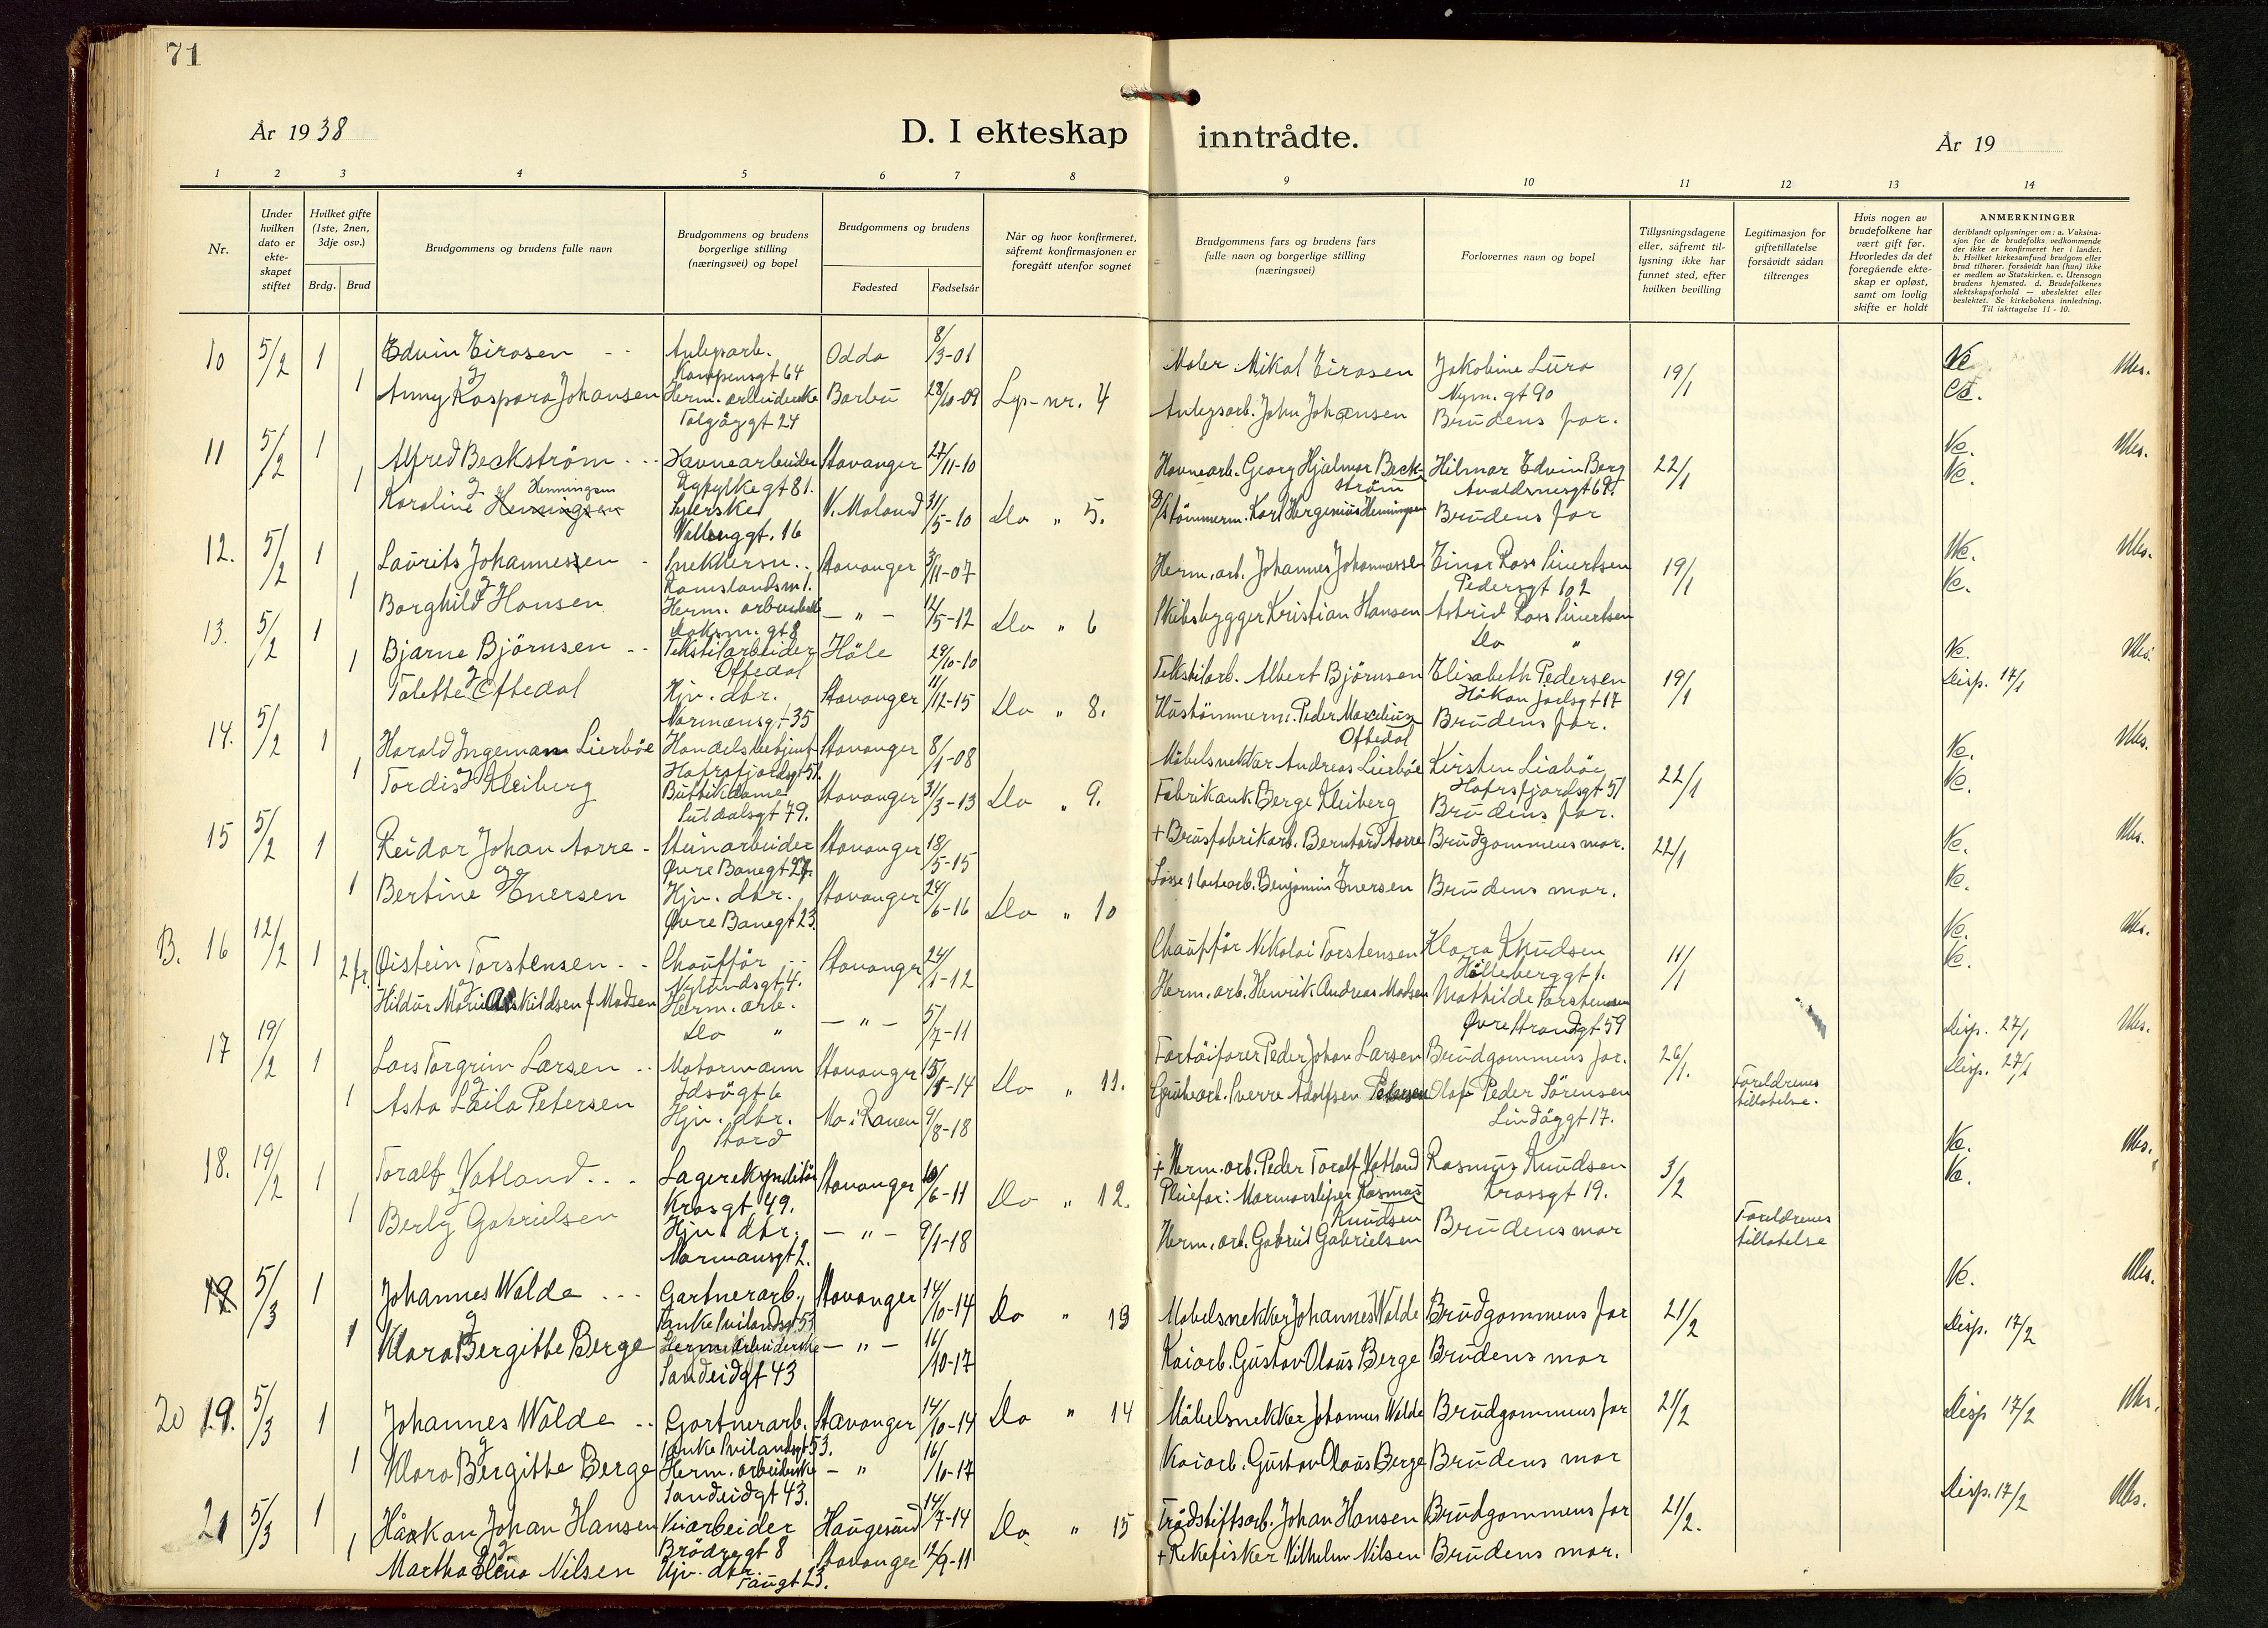 71
År 1938
D. I ekteskap inntrådte.
År 19
1 2 3 4 5 6 7 8 9 10 11 12 13 14
Nr.
Under hvilken dato er ekte-skapet stiftet
Hvilket gifte (1ste, 2nen, 3dje osv.)
Brdg. Brud
Brudgommens og brudens fulle navn
Brudgommens og brudens borgerlige stilling (næringsvei) og bopel
Brudgommens og brudens
Fødested Fødselsår
Når og hvor konfirmeret, såfremt konfirmasjonen er foregått utenfor sognet
Brudgommens fars og brudens fars fulle navn og borgerlige stilling (næringsvei)
Forlovernes navn og bopel
Tillysningsdagene eller, såfremt til-lysning ikke har funnet sted, efter hvilken bevilling
Legitimasjon for giftetillatelse forsåvidt sådan tiltrenges
Hvis nogen av brudefolkene har vært gift før. Hvorledes da det foregående ekte-skap er opløst, samt om lovlig skifte er holdt
ANMERKNINGER
deriblandt oplysninger om: a. Vaksina-
sjon for de brudefolks vedkommende
der ikke er konfirmeret her i landet.
b. Hvilket kirkesamfund brudgom eller
brud tilhører, forsåvidt han (hun) ikke
er medlem av Statskirken. c. Utensogn
brudens hjemsted. d. Brudefolkenes
slektskapsforhold — ubeslektet eller
beslektet. Se kirkebokens innledning.
Til iakttagelse 11 - 10.
10 5/2 1 Edvin Eirosen Anlegsarb. Odda 8/3-01 Maler Mikal Eirosen Jakobine Lura 19/1
Kampensgt 64 Nym. gt 90
1 Anny Kaspara Johansen Herm. arbeiderske Barbu 23/10-09 Lys-nr. 4 Anlegsarb. John Johansen Brudens far.
Talgøygt 24
11 5/2 1 Alfred Beckström Havnearbeider Stavanger 27/11-10 Havnearb. Georg Hjalmar Beck-ström Hilmar Edvin Berg 22/1
Ryfylkegt 81. Avaldsnesgt 69.
1 Karoline Henningsen Syerske V. Moland 31/5-10 Do " 5. Tømmerm. Karl Henningsen Brudens far
Vallenggt. 16
12. 5/2 1 Laurits Johannessen Snekkersv. Stavanger 3/11-07 Herm. arb. Johannes Johannessen Einar Ross Sivertsen 19/1
Ramslandsm 1. Pedersgt 102
1 Borghild Hansen Herm. arbeiderske — " — 12/5-12 Do " 6 Skibsbygger Kristian Hansen Astrid Ross Sivertsen
Doksm. gt 8 Do "
13. 5/2 1 Bjarne Björnsen Tekstilarbeider Høle 29/10-10 Tekstilarb. Albert Björnsen Elisabeth Pedersen 19/1
Oftedal Håkon jarlsgt 17
1 Talette Oftedal Hjv. dtr. Stavanger 11/12-15 Do " 8. Hustömmerm. Peder Maxelius Oftedal Brudens far. Disp. 17/1
Normansgt 35
14. 5/2 1 Harald Ingemann Lierböe Handelsbetjent Stavanger 8/1-08 Möbelsnekker Andreas Lierböe Kirsten Liaböe 22/1
Hafrsfjordsgt 51 Hafrsfjordsgt 51
1 Tordis Kleiberg Butikdame Stavanger 31/3-13 Do " 9. Fabrikant Berge Kleiberg Brudens far.
Suldalsgt 79.
15 5/2 1 Reidar Johan Aarre Stenarbeider Stavanger 18/5-15 + Brusfabrikarb. Bernhard Aarre Brudgommens mor. 22/1
Øvre Banegt 27.
1 Bertine Enersen Hjv. dtr. Stavanger 24/6-16 Do " 10 Løsse & lastearb. Benjamin Enersen Brudens mor.
Øvre Banegt 23.
B. 16 12/2 1 Øistein Torstensen Chauffør Stavanger 24/1-12 Chauffør Nikolai Torstensen Klara Knudsen 11/1
Nylundsgt 4. Hilleberggt 1.
2 fr. Hildur Marie Askildsen f. Madsen Herm. arb. — " — 5/7-11 Herm. arb. Henrik Andreas Madsen Mathilde Torstensen
Do " Øvre Strandgt 59
17 19/2 1 Lars Torgrim Larsen Motormann Stavanger 13/5-14 Fartøiförer Peder Johan Larsen Brudgommens far. 26/1. Disp. 27/1
Idsøgt 6
1 Asta Laila Petersen Hjv. dtr. Mo i Ranen 9/8-18 Do " 11. Grubearb. Sverre Adolfsen Petersen Olaf Peder Sörensen Foreldrenes tillatelse. Disp. 27/1
Stord Lindøygt 17.
18. 19/2 1 Toralf Vatland Lagerekspeditør Stavanger 10/6-11 + Herm. arb. Peder Toralf Vatland Rasmus Knudsen 3/2
Krosgt. 49. Do " 12. Pleiefar: Marmorsliper Rasmus Knudsen Krossgt 19.
1 Berly Gabrielsen Hjv. dtr. — " — 9/1-18 Herm. arb. Gabriel Gabrielsen Brudens mor Foreldrenes tillatelse
Normansgt 2.
19 5/3 1 Johannes Walde Gartnerarb. Stavanger 14/10-14 Do " 13 Møbelsnekker Johannes Walde Brudgommens far 21/2
Tanke Svilandsgt 53
1 Klara Bergitte Berge Hermetikarbeiderske — " — 16/10-17 Kaiarb. Gustav Olaus Berge Brudens mor Disp. 17/2
Sandeidgt 43
20 19. 5/3 1 Johannes Walde Gartnerarb. Stavanger 14/10-14 Do " 14 Möbelsnekker Johannes Walde Brudgommens far 21/2 Disp 17/2
Tanke Svilandsgt 53.
1 Klara Bergitte Berge Herm. arbeiderske — " 16/10-17 Kaiarb. Gustav Olaus Berge Brudens mor
Sandeidgt 43.
21 5/3 1 Håkan Johan Hansen Veiarbeider Haugesund 14/7-14 Do " 15 Trådstiftsarb. Johan Hansen Brudgommens far 21/2. Disp. 17/2
Brödregt 8
1 Martha Elena Nilsen Hjv. dtr. Stavanger 12/9-11 + Rekefisker Vilhelm Nilsen Brudens mor.
Taugt 23.